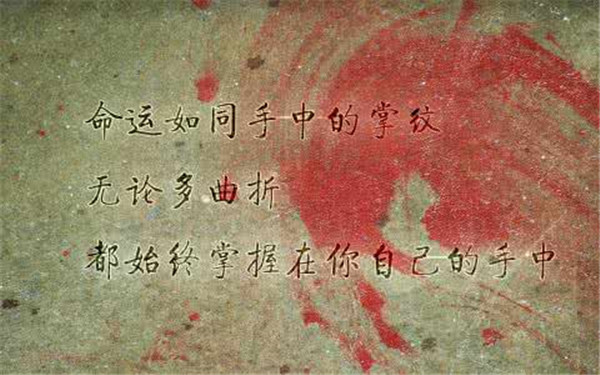 命运如同手中的掌纹
无论多曲折
都始终掌握在你自己的手中